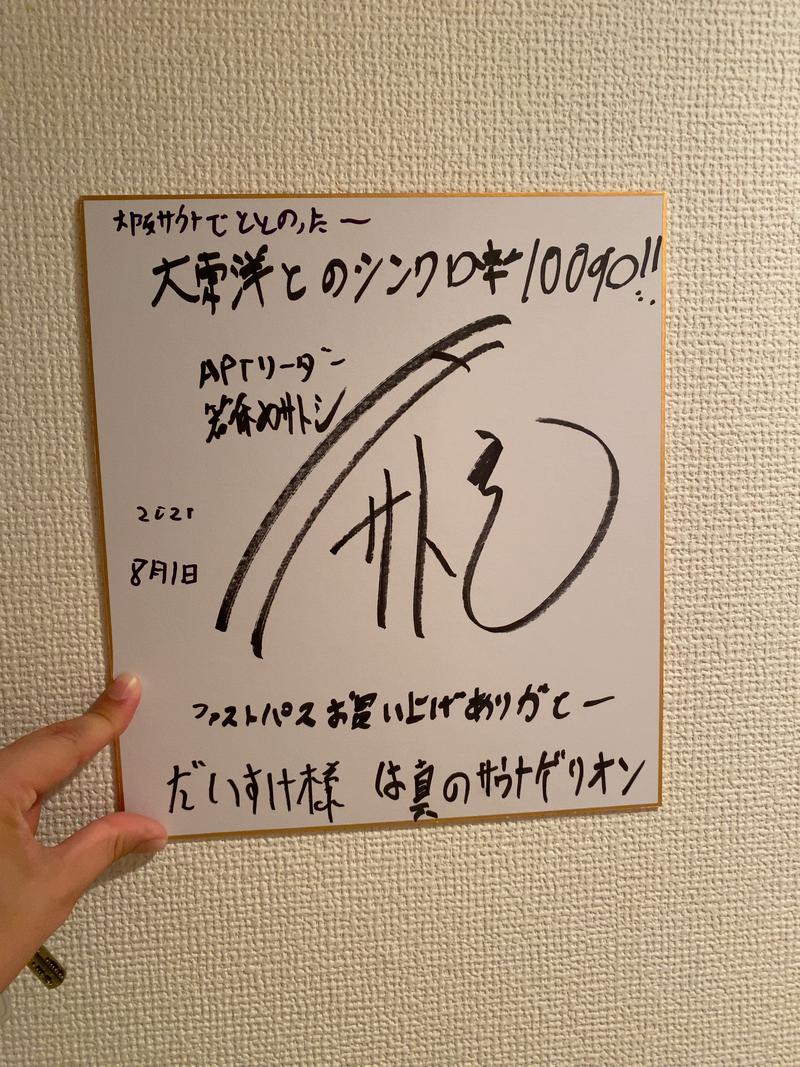 大阪サウナでととのった〜
大東洋とのシンクロ率100%!!
APTリーダー
箸休めサトシ
サトシ
2021
8月1日
ファストパスお買い上げありがとー
だいすけ様 は真のサウナゲリオン